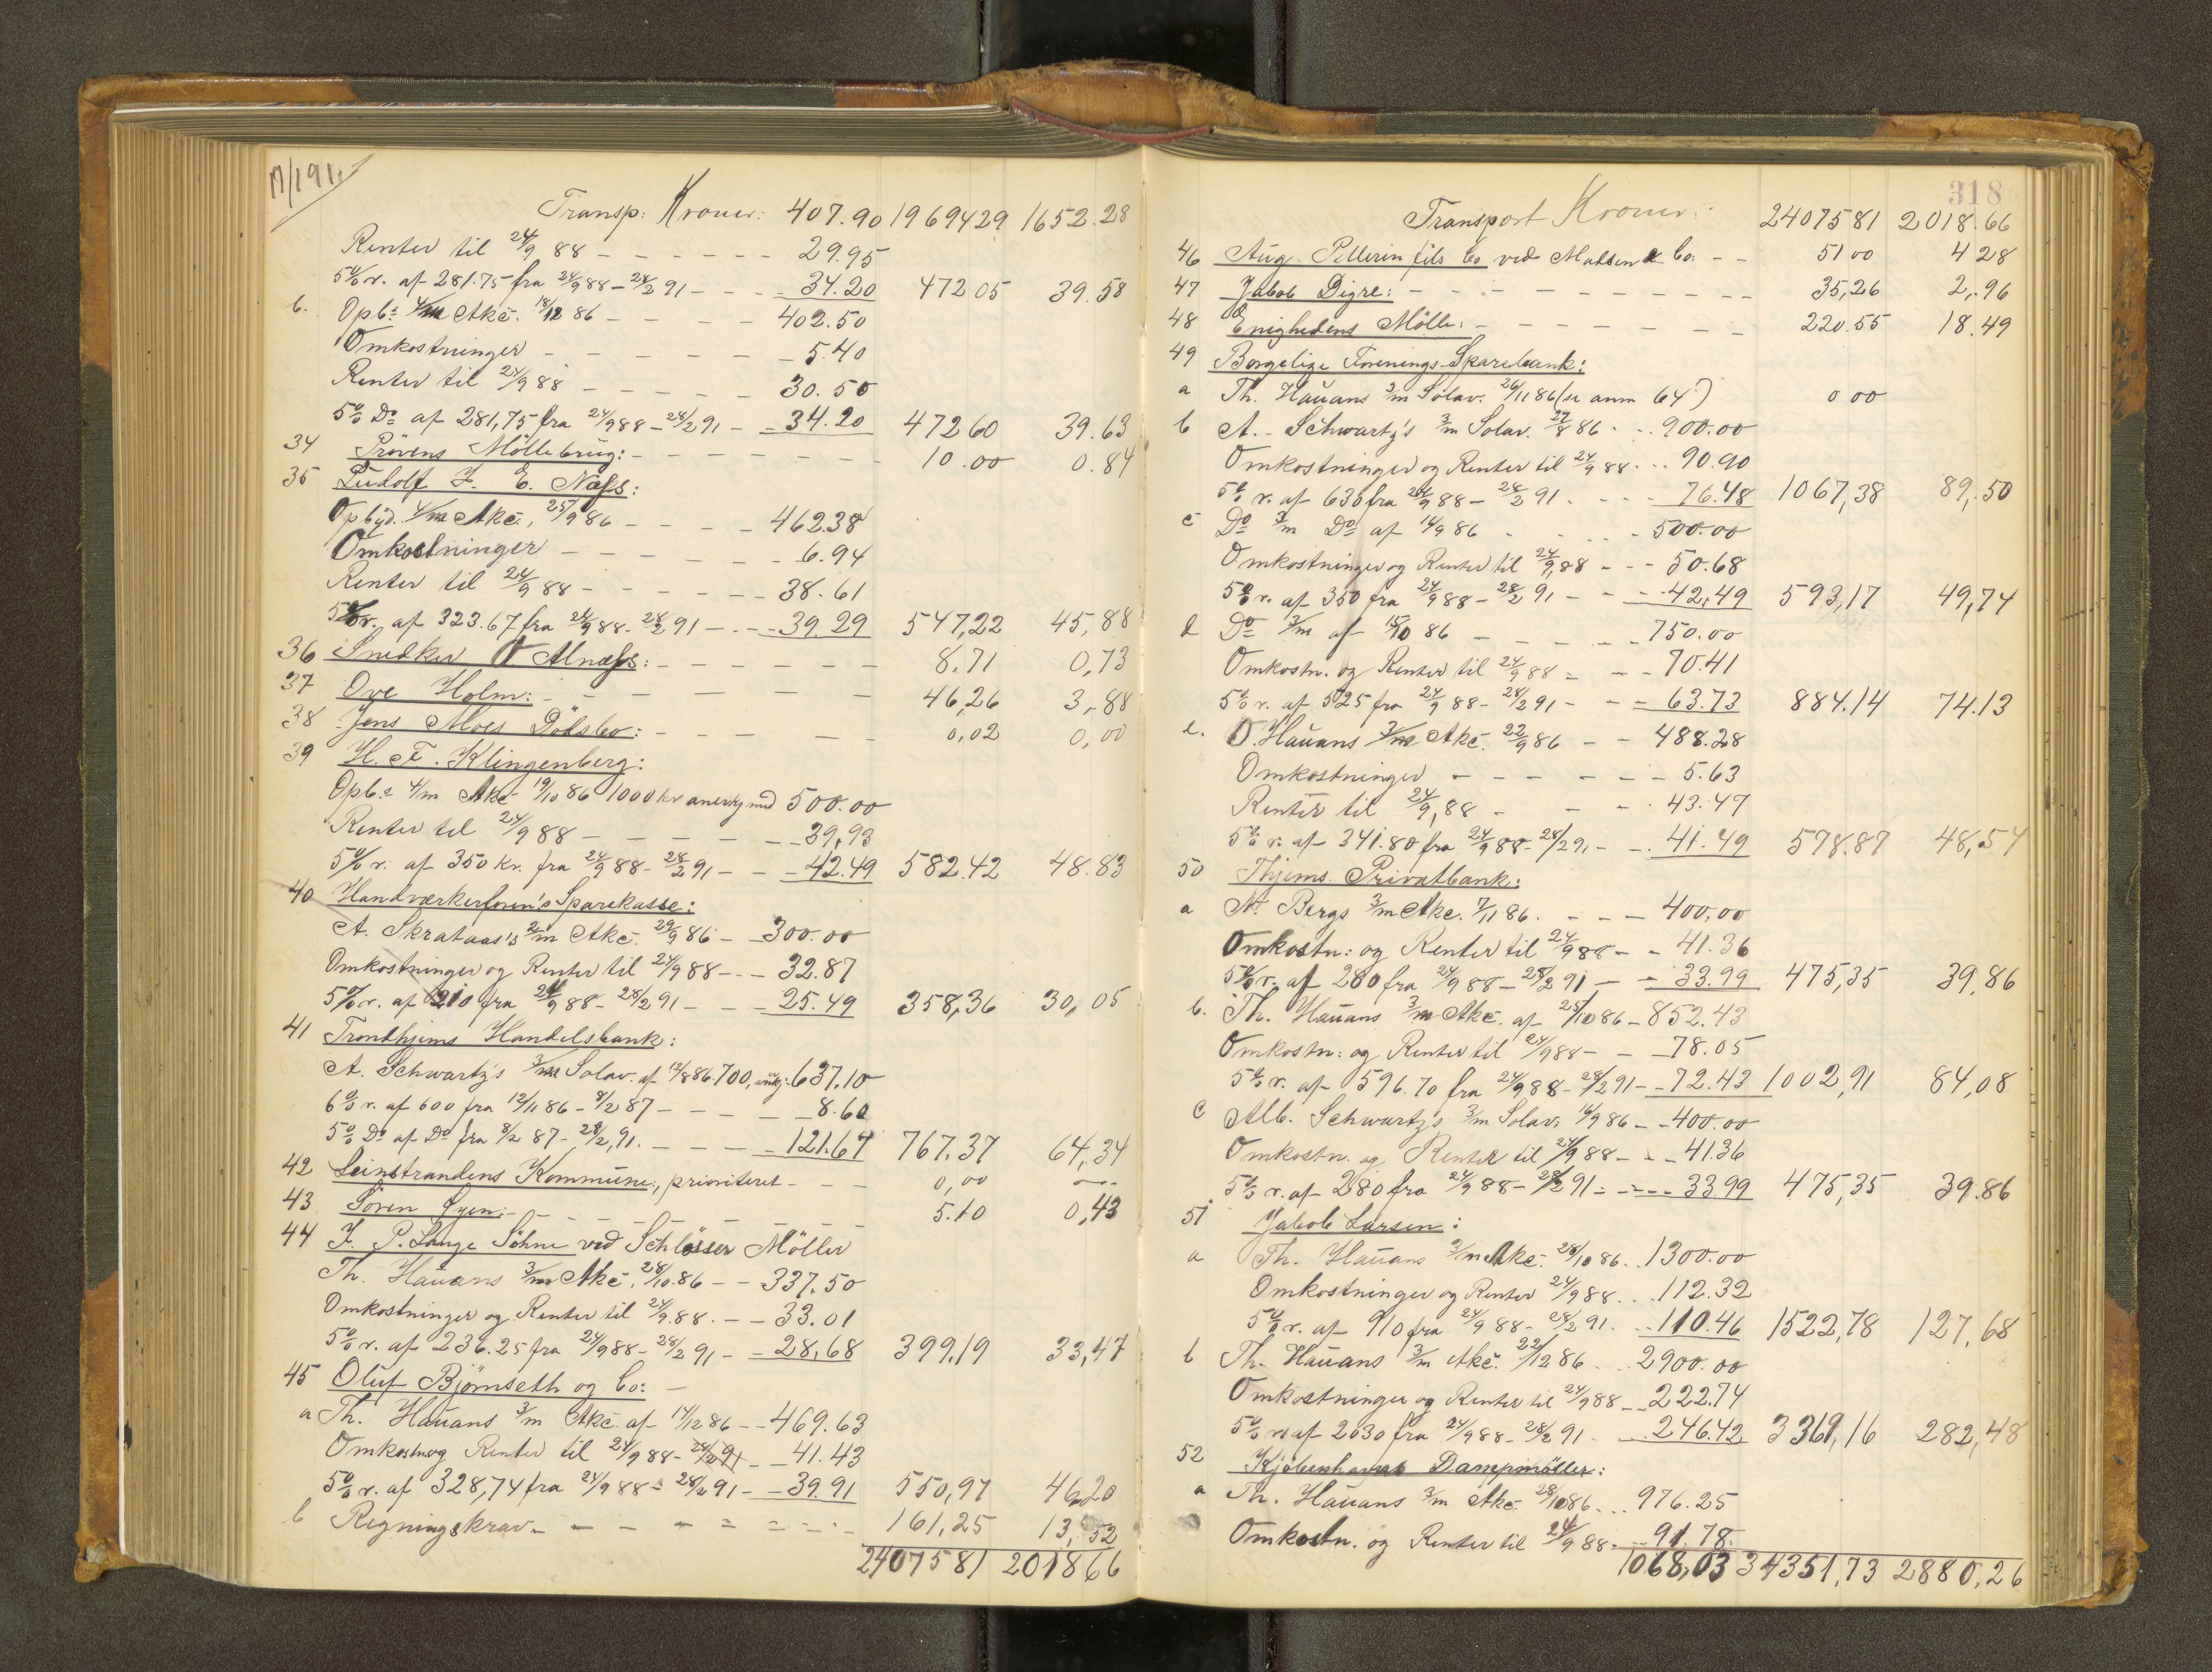 17/1 91.
Transp: Kroner: 407.90 19694 29 1652.28
Renter til 24/9 88 - - - - - - 29.95
5% r. af 281.75 fra 24/9 88 - 28/2 91 - - - 34.20 472 05 39.58
b. Opb: 4/m Akc. 18/12 86 - - - - 402.50
Omkostninger - - - - - - 5.40
Renter til 24/9 88 - - - - - 30.50
5% Do af 281,75 fra 24/9 88 - 28/2 91 - - 34.20 472 60 39.63
34 Prövens Möllebrug: - - - - - - - 10.00 0.84
35 Ludolf J. E. Næss:
Opbyd. 4/m Akc. 25/9 86 - - - - 462.38
Omkostninger - - - - - - 6.94
Renter til 24/9 88 - - - - - - 38.61
5% r. af 323.67 fra 24/9 88 - 28/2 91 - - - 39.29 547,22 45,88
36 Snedker O Alnæss: - - - - - - 8.71 0,73
37 Ove Holm: - - - - - - 46,26 3,88
38 Jens Moes Dödsbo: - - - - - 0,02 0,00
39 H. F. Klingenberg:
Opb: 4/m Akc 19/10 86 1000 kr anerkj med 500.00
Renter til 24/9 88 - - - - - - 39,93
5% r. af 350 kr. fra 24/9 88 - 28/2 91 - - - 42.49 582.42 48.83
40 Handværkerforen's Sparekasse:
A. Skrataas's 2/m Akc. 29/9 86 - - 300.00
Omkostninger og Renter til 24/9 88 - - - 32.87
5% r. af 210 fra 24/9 88 - 28/2 91 - - - 25.49 358,36 30,05
41 Trondhjems Handelsbank:
A. Schwartz's 3/m Solav. af 12/8 86 700, ankj: 637.10
6% r. af 600 fra 12/11 86 - 8/2 87 - - - - - 8.60
5% Do af Do fra 8/2 87 - 28/2 91. - - - - 121.67 767.37 64,34
42 Leinstrandens Kommune, prioriteret - - - 0,00 ---
43 Sören Öyen: - - - - - - - 5.10 0,43
44 J. P. Lange Söhne ved Schlösser Möller
Th. Hauans 3/m Akc. 28/10 86 - - 337.50
Omkostninger og Renter til 24/9 88. - - 33.01
5% r. af 236.25 fra 24/9 88 - 28/2 91 - - 28,68 399,19 33,47
45 Oluf Björnseth og Co: -
a Th. Hauans 3/m Akc af 14/12 86 - - 469.63
Omkostn og Renter til 24/9 88 - 28/2 91 - - 41.43
5% r. af 328,74 fra 24/9 88 - 28/2 91 - - 39.91 550,97 46.20
b Regningskrav - - - - - - - - 161,25 13,52
24075 81 2018 66
318
Transport Kroner: 24075 81 2018.66
46 Aug. Pellerin fils Co ved Madsen & Co: - - 51 00 4 28
47 Jakob Digre: - - - - - - - - - 35,26 2,96
48 Enighedens Mölle: - - - - - - - 220.55 18.49
49 Borgelige Forenings-Sparebank:
a Th. Hauans 3/m Solav. 26/11 86 (se anm 64) 0 00
b A. Schwartz's 3/m Solav. 27/8 86 - - 900.00
Omkostninger og Renter til 24/9 88 . . . 90.90
5% r. af 630 fra 24/9 88 - 28/2 91. - - - 76.48 1067,38 89,50
c Do 3/m Do af 14/9 86 - - - - 500.00
Omkostninger og Renter til 24/9 88 - - - 50.68
5% r. af 350 fra 24/9 88 - 28/2 91 - - - 42,49 593,17 49,74
d Do 3/m af 15/10 86 - - - - - 750.00
Omkostn. og Renter til 24/9 88 = - - 70.41
5% r. af 525 fra 24/9 88 - 28/2 91 - - - 63.73 884.14 74.13
e. O. Hauans 3/m Akc. 22/9 86 - - 488.28
Omkostninger - - - - - - 5.63
Renter til 24/9 88 - - - 43.47
5% r. af 341.80 fra 24/9 88 - 28/2 91 - - 41.49 578.87 48,54
50 Thjems Privatbank:
a N. Bergs 3/m Akc. 7/11 86. - - - 400,00
Omkostn: og Renter til 24/9 88 - - 41.36
5% r. af 280 fra 24/9 88 - 28/2 91 - - 33.99 475,35 39,86
b. Th. Hauans 3/m Akc. af 25/10 86 - 852.43
Omkostn: og Renter til 24/9 88 - - 78.05
5% r. af 596.70 fra 24/9 88 - 28/2 91 - - 72.43 1002,91 84,08
c Alb. Schwartz's 3/m Solav. 16/9 86 - - 400.00
Omkostn. og Renter til 24/9 88 - - - 41.36
5% r. af 280 fra 24/9 88 - 28/2 91 - - - - 33.99 475,35 39.86
51 Jakob Larsen:
a Th. Hauans 3/m Akc. 28/10 86 . . 1300.00
Omkostninger og Renter 24/9 88 . . . 112.32
5% r. af 910 fra 24/9 88 - 28/2 91. . . 110.46 1522,78 127,68
b Th. Hauans 3/m Akc. 22/12 86 . . 2900.00
Omkostninger og Renter til 24/9 88 - - 222.74
5% r. af 2030 fra 24/9 88 - 28/2 91. - - 246.42 3369,16 282,48
52 Kjöbenhavns Dampmöller:
a Th. Hauans 3/m Akc. 28/10 86 . . . 976.25
Omkostn. og Renter til 24/9 88 - - 91.78
1068,03 34351,73 2880,26